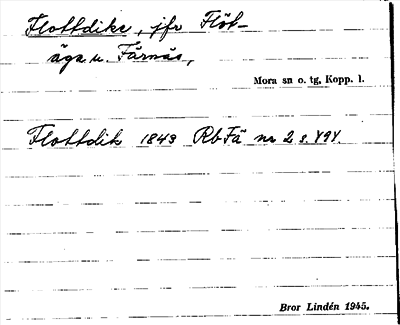 Flottdike, jfr Flöt-
äga u. Färnäs,
Mora sn o. tg, Kopp. l.
Flottdik 1843 Rb Fä nr 2 s.
Bror Lindén 1945.